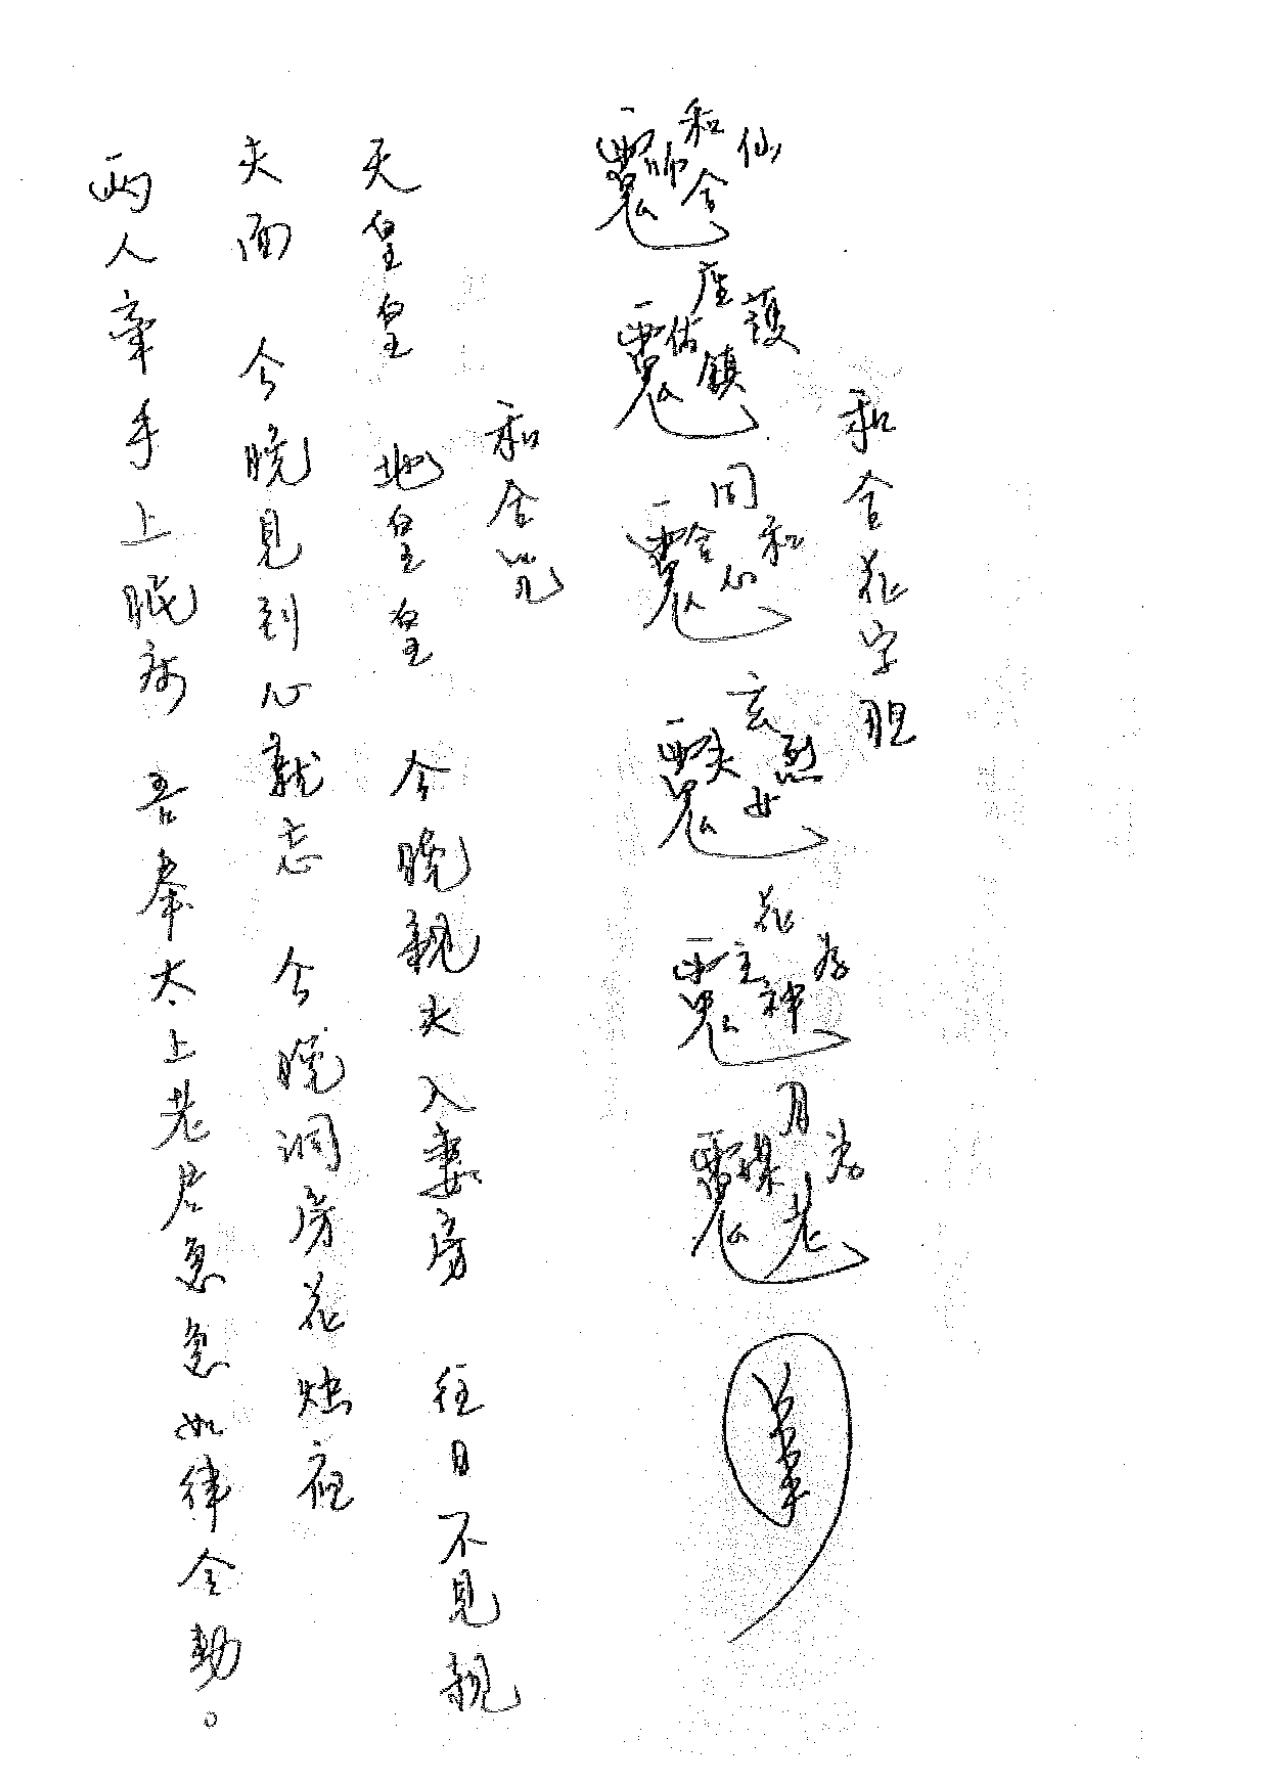 和合花字胆
和合仙師
座鎮護佑
同心和合
玄女烈夫
花神為主
月老為媒
和合咒
天皇皇 地皇皇 今晚親夫入妻房 往日不見親
夫面 今晚見到心就志 今晚洞房花烛夜
两人牽手上眠床 吾奉太上老君急急如律令勅。